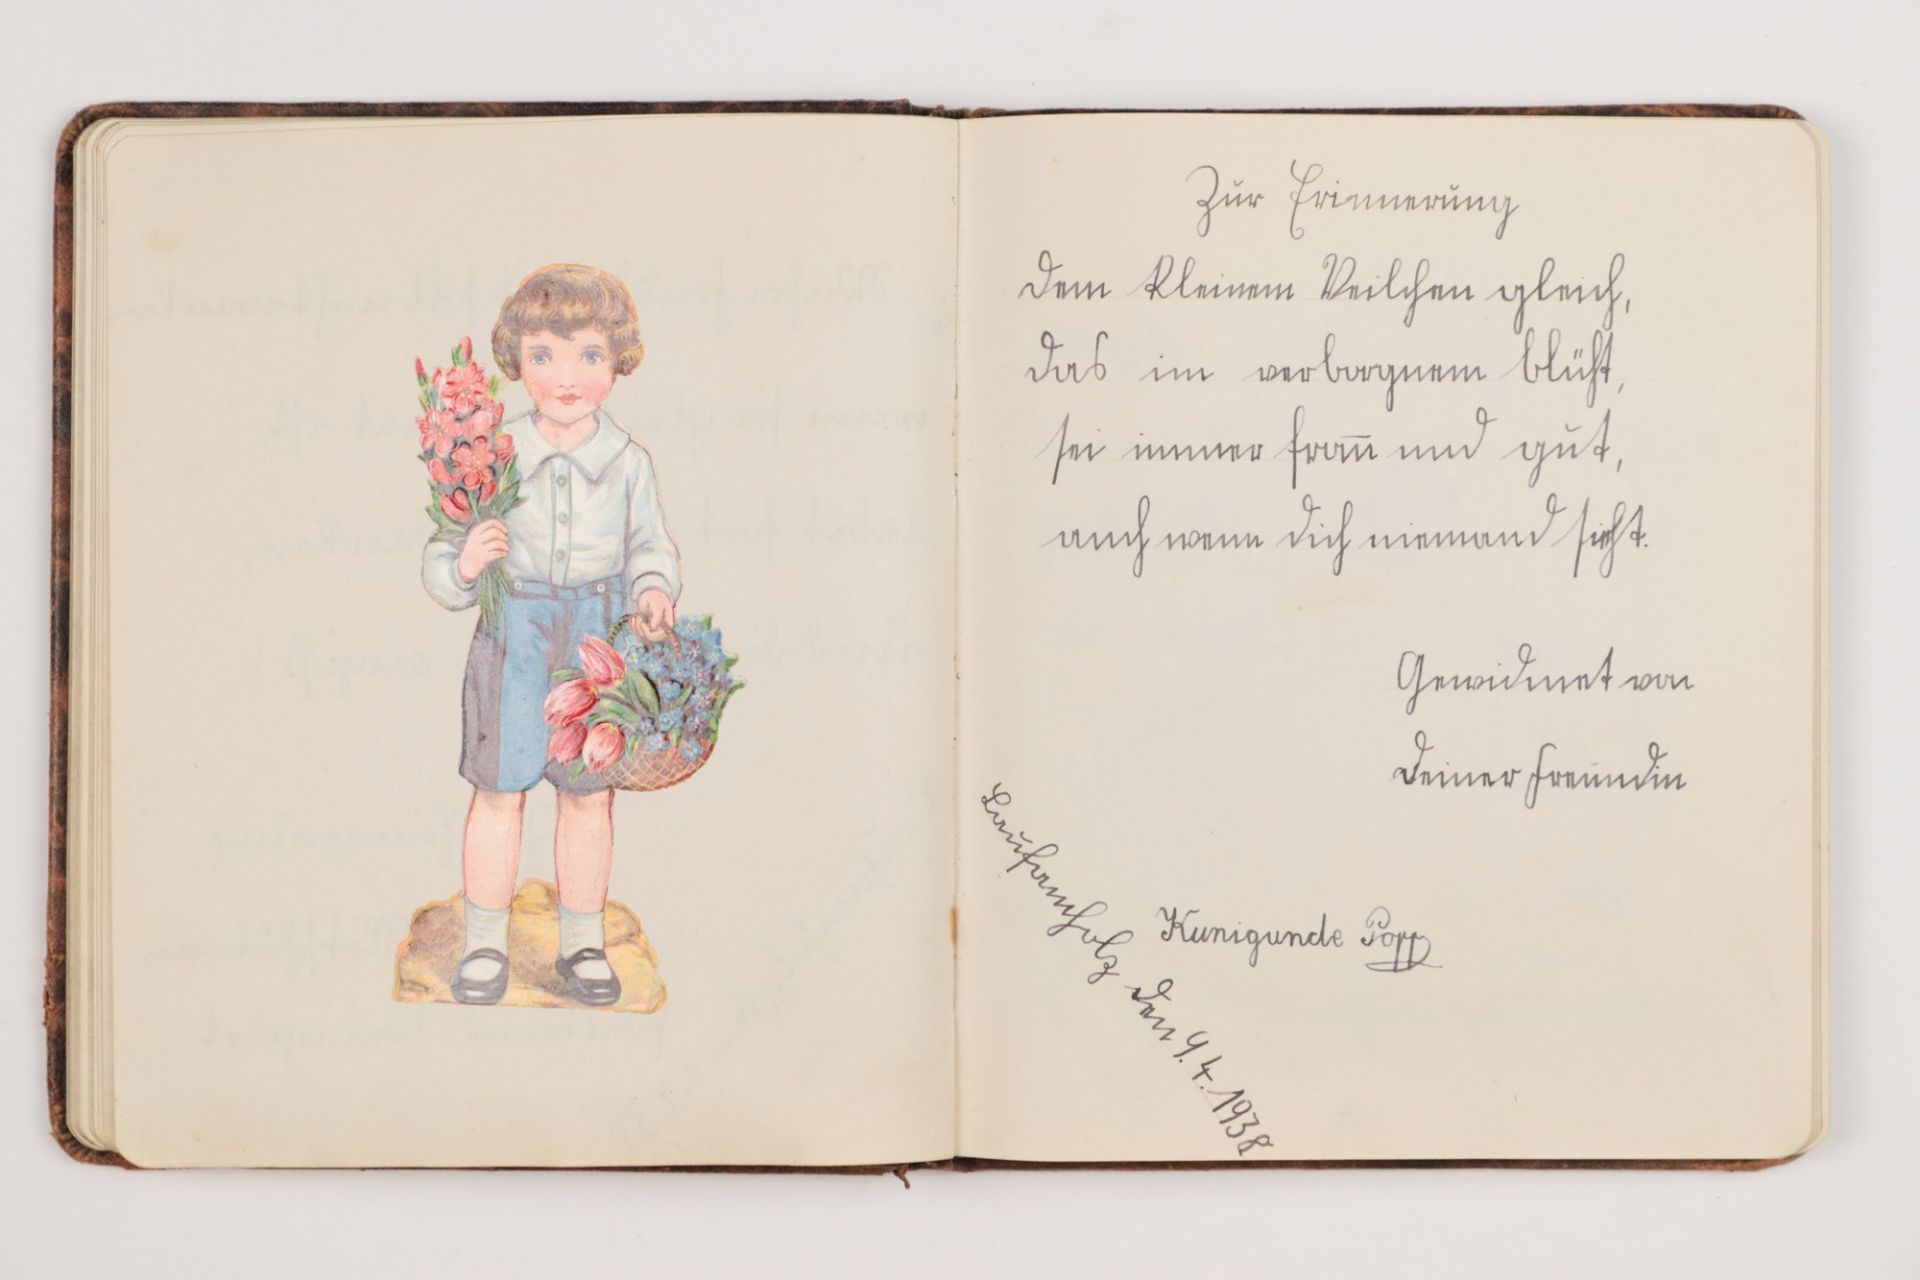 Zur Erinnerung
Dem kleinem Veilchen gleich,
das im verborgnem blüht,
sei immer from̅ und gut,
auch wenn dich niemand sieht.
Gewidmet von
Deiner Freundin
Kunigunde Popp
Laufamholz den 9.4.1938